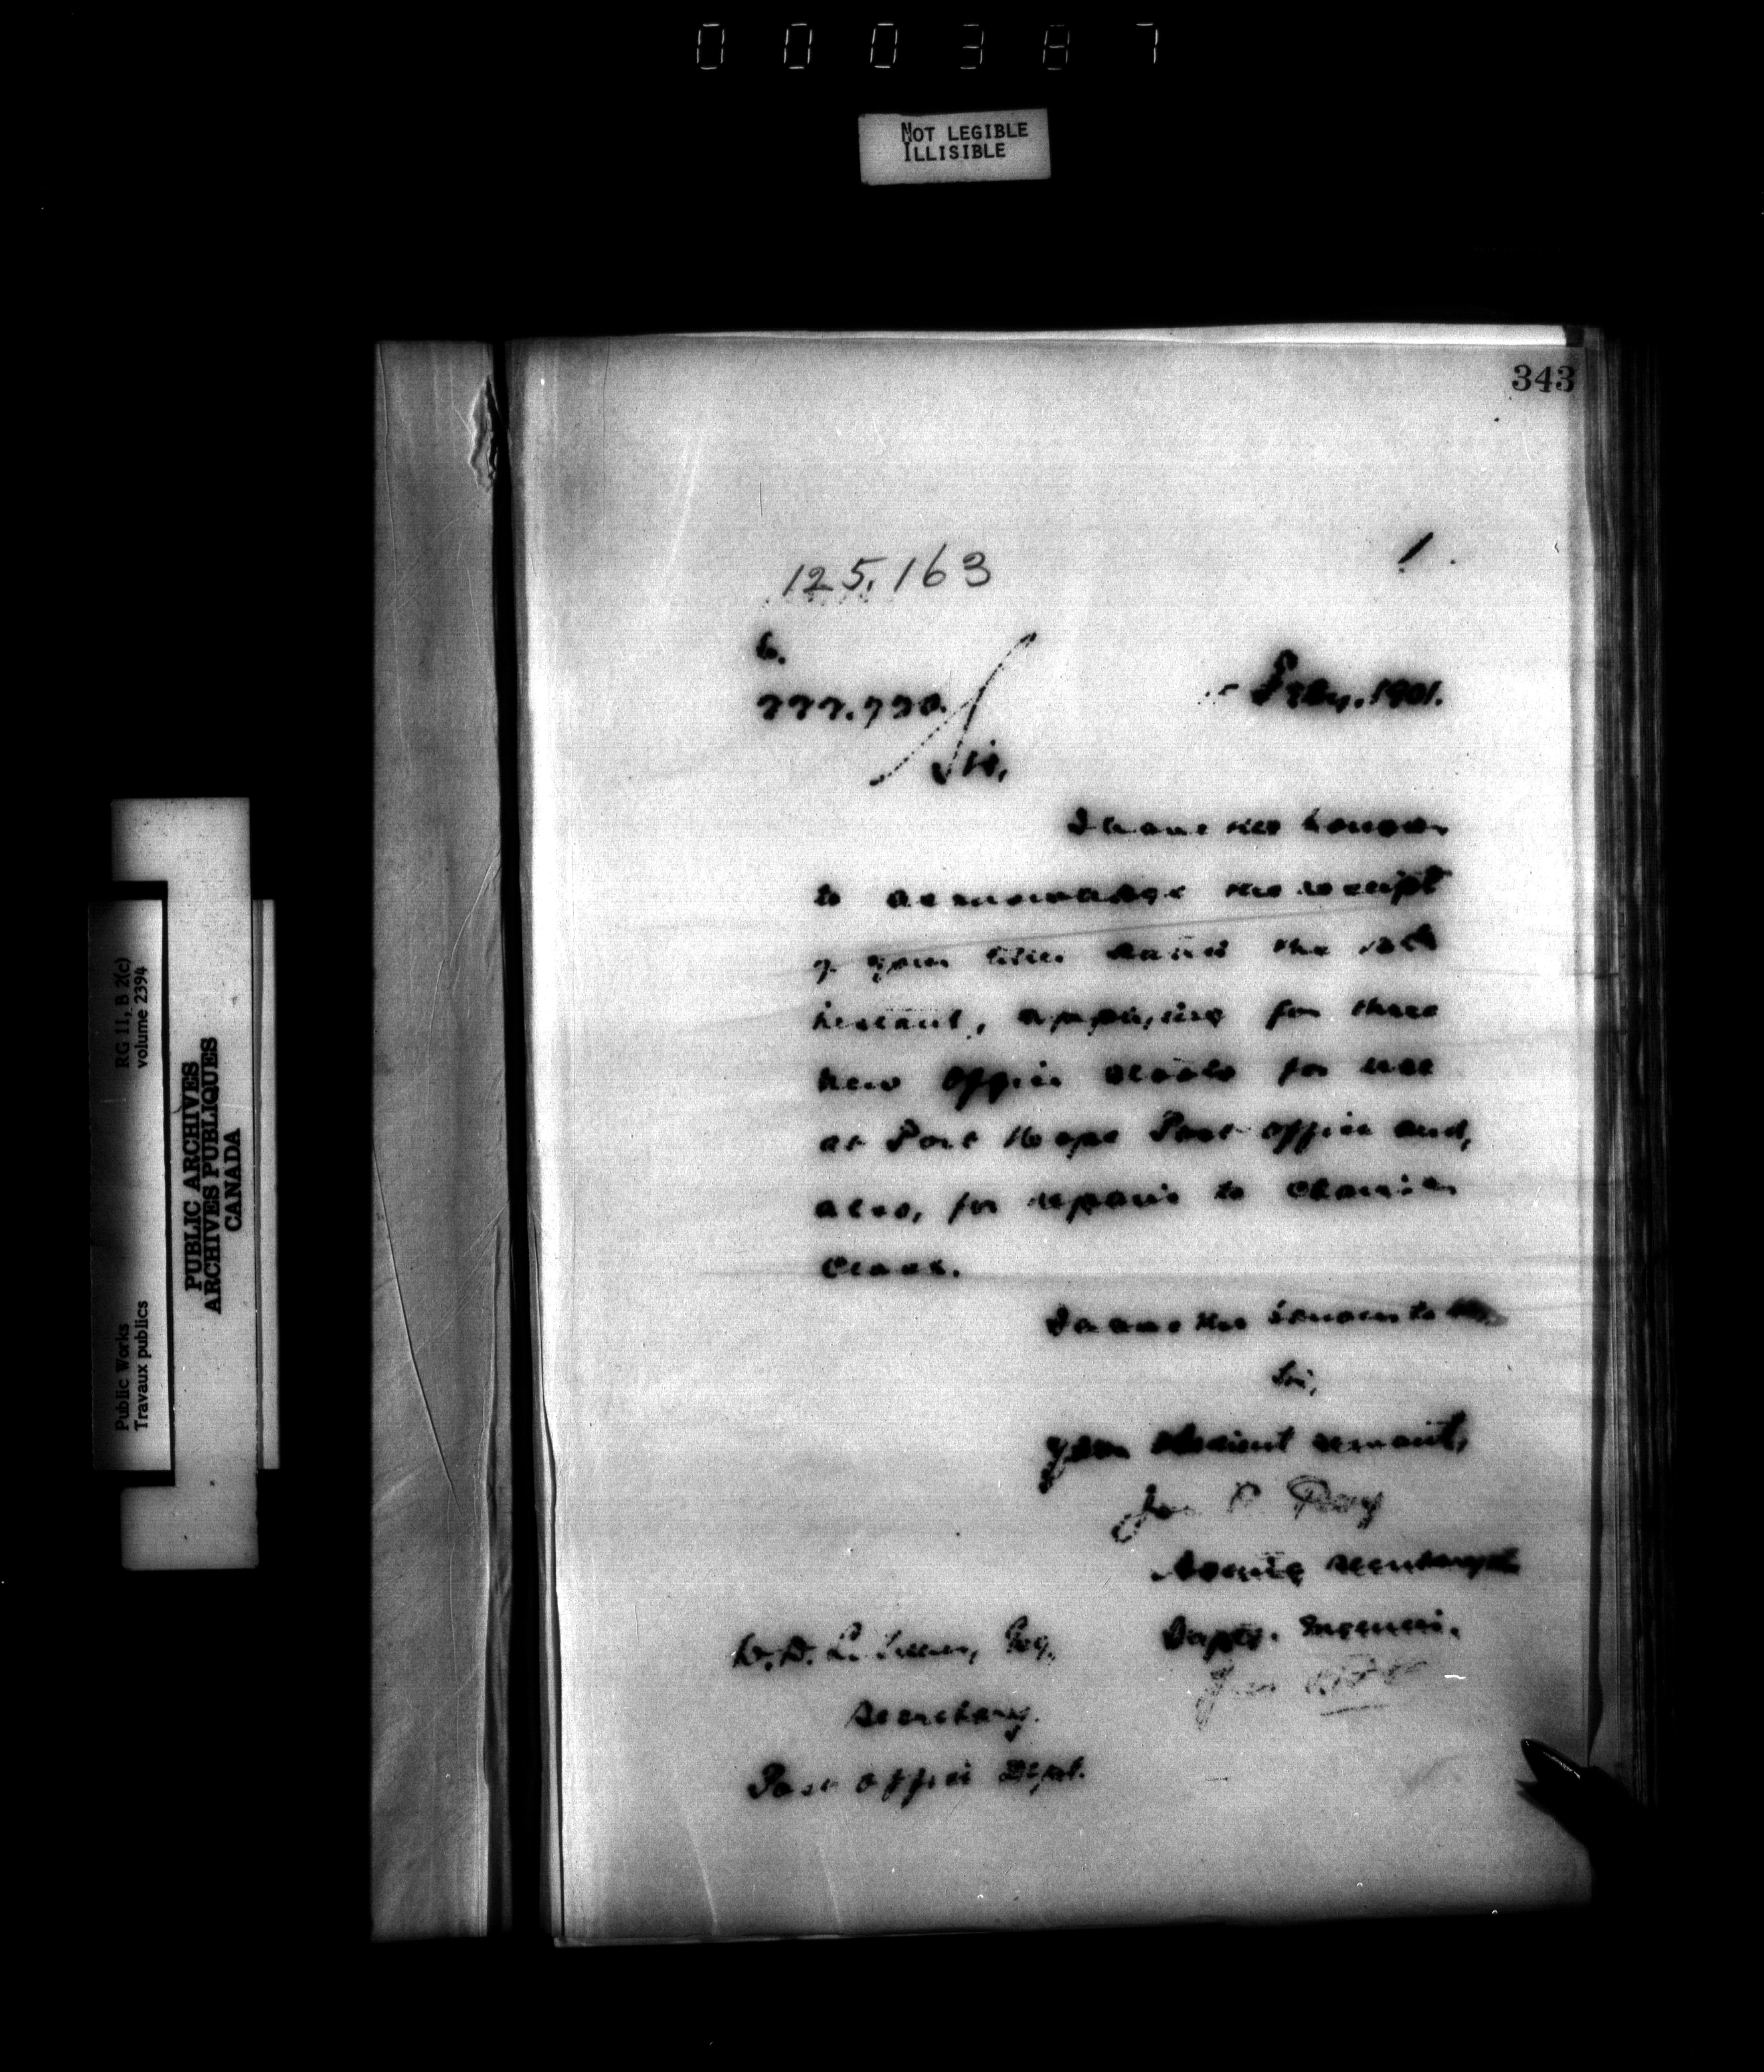 000387
NOT LEGIBLE
ILLISIBLE
343
125.163
1.
Feby. 1901.
Sir,
I have the honour
to acknowledge the receipt
of your letter dated the
instant, applying for three
new office stools for use
at Port Hope Post office and,
also, for repairs to
I have the honour to be,
Sir,
Your obedient servant,
Acting Secretary
W. D. Esq.,
Secretary.
Post office Dept.
Public Works
Travaux publics
RG 11, B 2(c)
volume 2394
PUBLIC ARCHIVES
ARCHIVES PUBLIQUES
CANADA